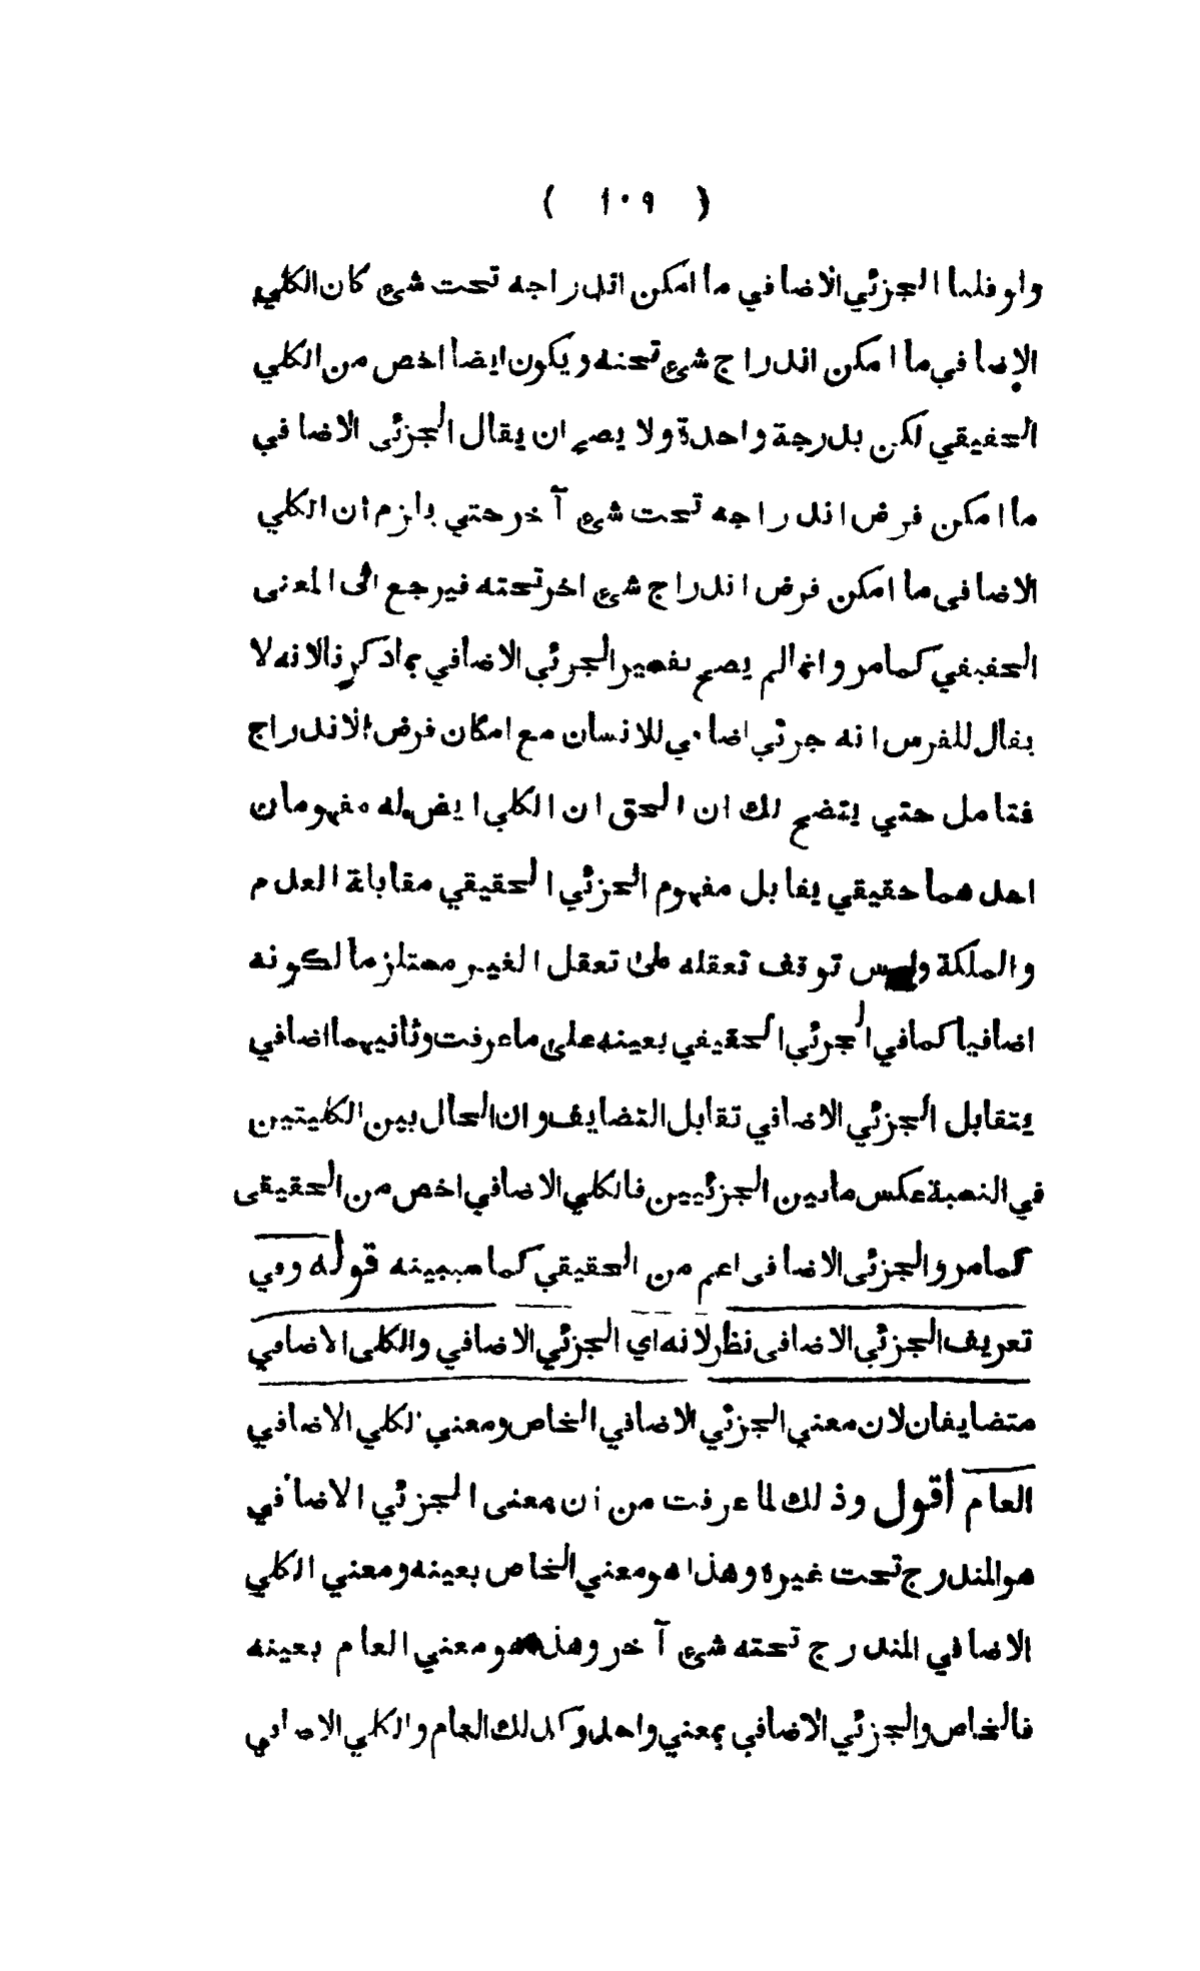 ( ١٠٩ )
ولو قلنا الجزئي الاضافي ما امكن اندراجه تحت شئ كان الكلي
الاضافي ما امكن اندراج شئ تحته ويكون ايضا اخص من الكلي
الحقيقي لكن بدرجة واحدة ولا يصح ان يقال الجزئى الاضافي
ما امكن فرض اندراجه تحت شئ آخر حتي يلزم ان الكلي
الاضافى ما امكن فرض اندراج شئ اخر تحته فيرجع الى المعنى
الحقيقي كما مر وانما لم يصح تفسير الجزئي الاضافي بما ذكرنا لانه لا
يقال للفرس انه جزئي اضافي للانسان مع امكان فرض الاندراج
فتامل حتي يتضح لك ان الحق ان الكلي ايض له مفهومان
احدهما حقيقي يقابل مفهوم الجزئي الحقيقي مقابلة العدم
والملكة وليس توقف تعقله على تعقل الغير مستلزما لكونه
اضافيا كما في الجزئي الحقيقي بعينه على ما عرفت وثانيهما اضافي
يتقابل الجزئي الاضافي تقابل التضايف وان الحال بين الكليتين
في النسبة عكس ما بين الجزئيين فالكلي الاضافي اخص من الحقيقى
كما مر والجزئى الاضافى اعم من الحقيقي كما سيبينه قوله وفي
تعريف الجزئي الاضافى نظر لانه اي الجزئي الاضافي والكلى الاضافي
متضايفان لان معني الجزئي الاضافي الخاص ومعني الكلي الاضافي
العام أقول وذلك لما عرفت من ان معنى الجزئي الاضافي
هو المندرج تحت غيره وهذا هو معني الخاص بعينه ومعني الكلي
الاضافي المندرج تحته شئ آخر وهذا هو معني العام بعينه
فالخاص والجزئي الاضافي بمعني واحد وكذلك العام والكلي الاضافي